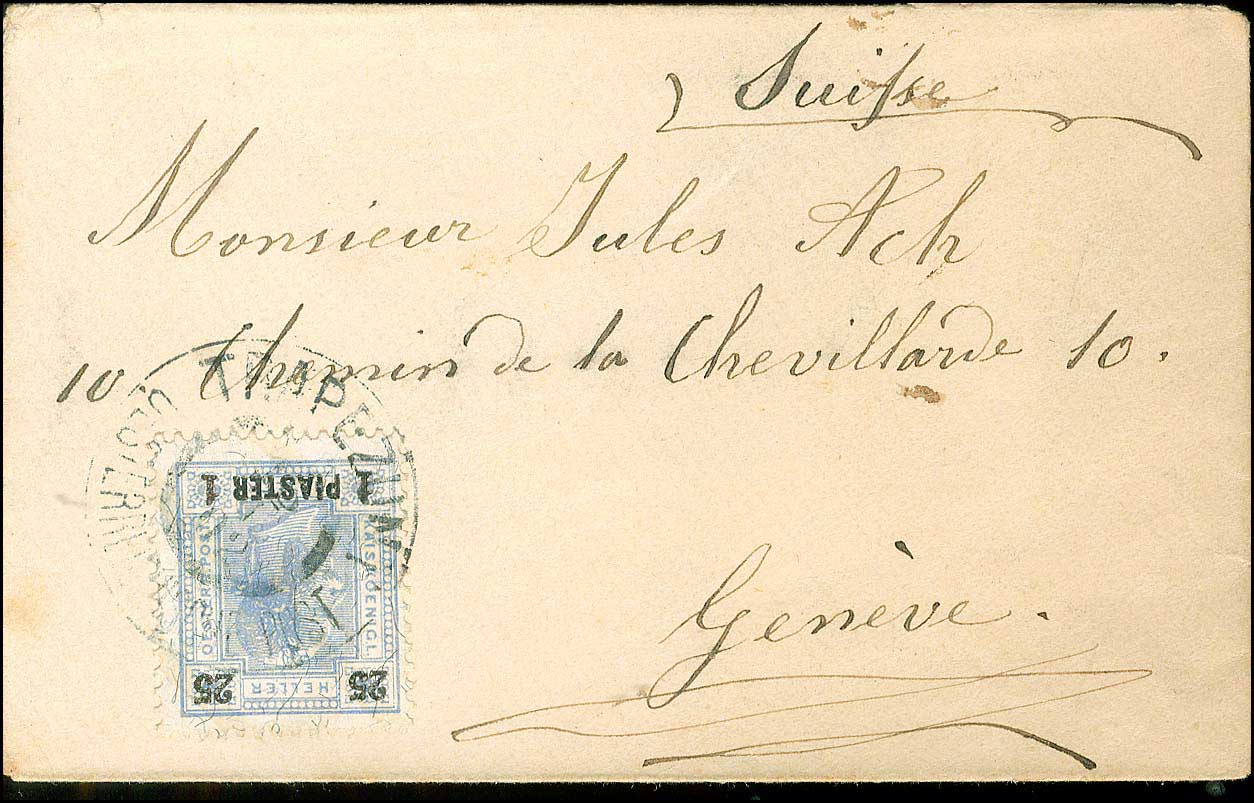 Suisse
Monsieur Jules Ach
10 Chemin de la Chevillarde 10.
Genève.
TRAPEZUNT
1 PIASTER 1
KAIS. KOENIGL.
OESTERR. POST
25 HELLER 25